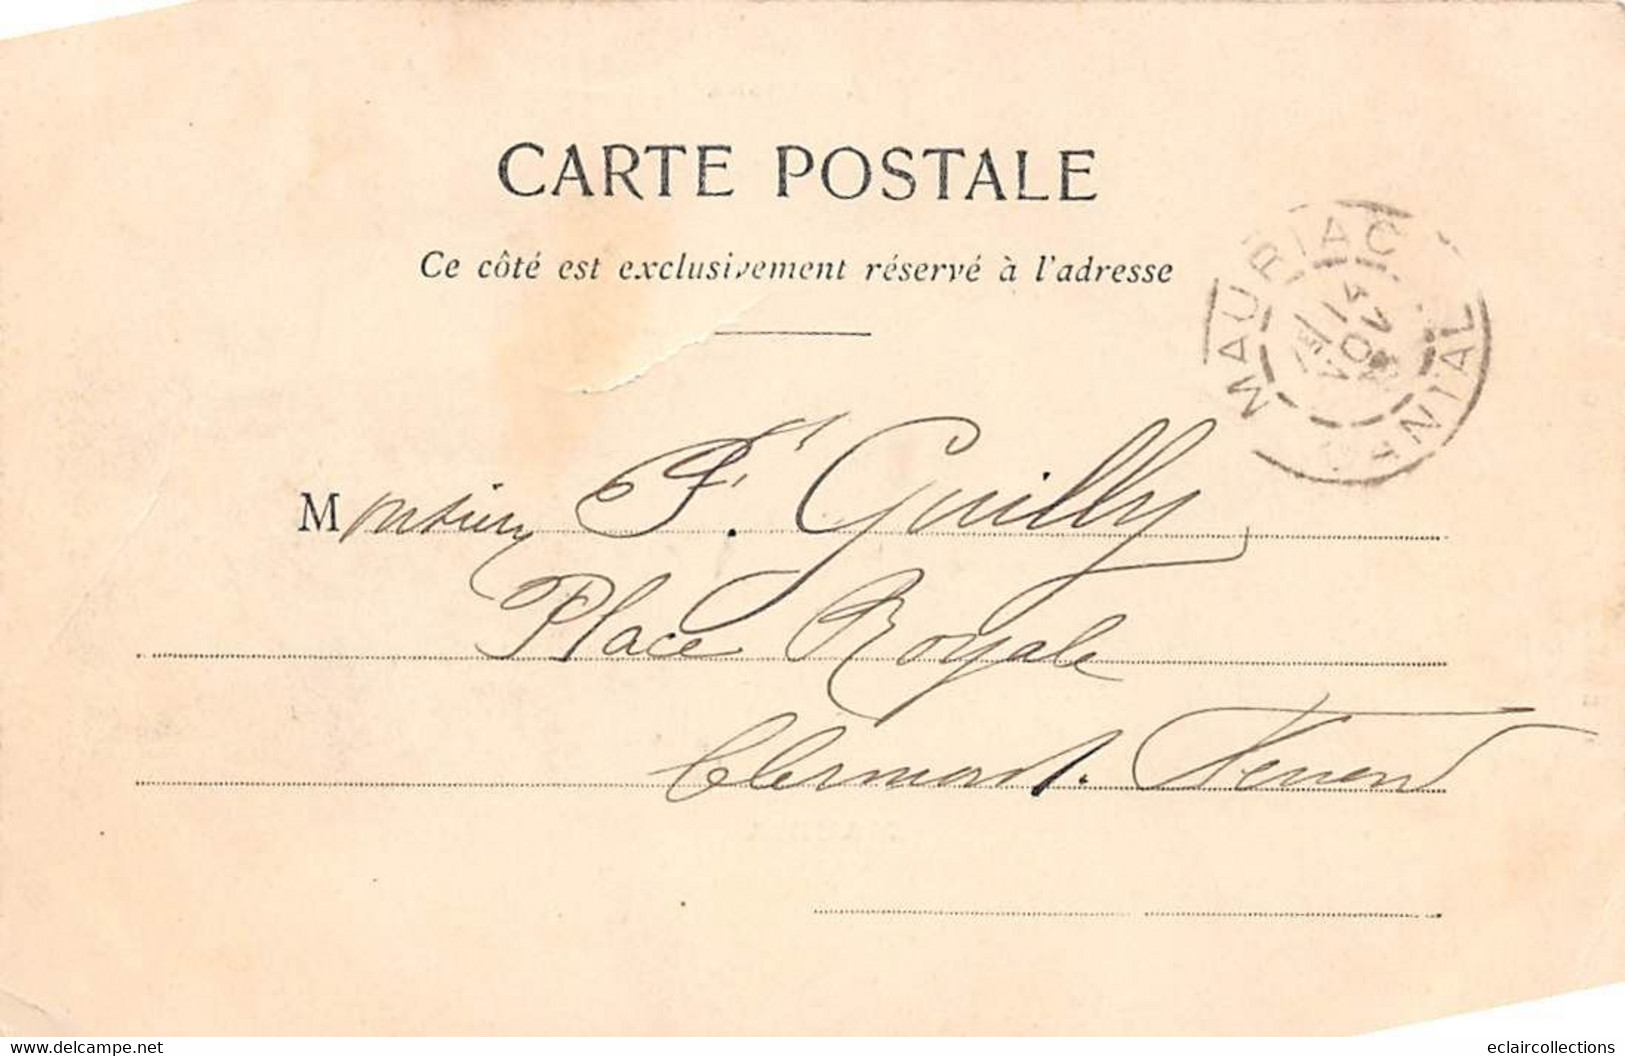 CARTE POSTALE
Ce côté est exclusivement réservé à l'adresse
MAURIAC
CANTAL
14
NOV
Monsieur F. Guilly
Place Royale
Clermont. Ferrand
Visitez www.delcampe.net
eclaircollections